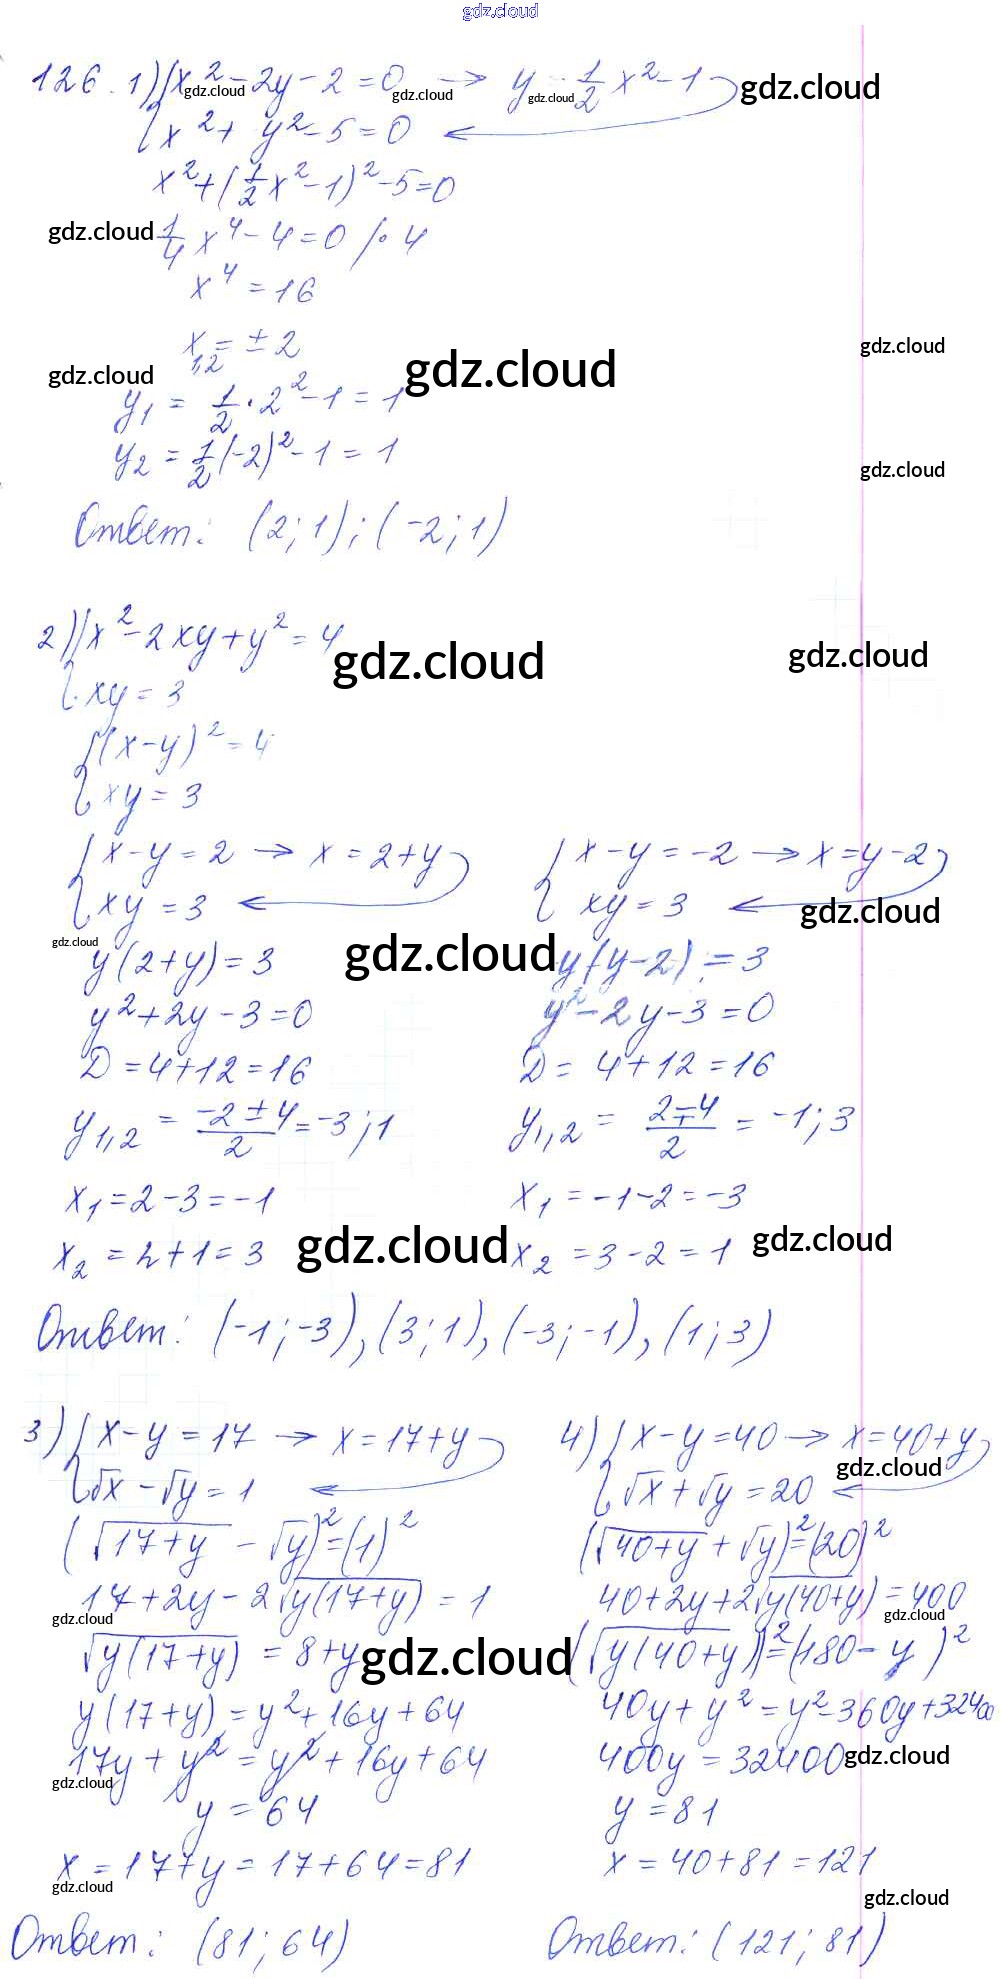 gdz.cloud
126. 1) { x² - 2y - 2 = 0 → y = 1/2 x² - 1
gdz.cloud gdz.cloud gdz.cloud gdz.cloud
x² + y² - 5 = 0
x² + (1/2 x² - 1)² - 5 = 0
gdz.cloud 1/4 x⁴ - 4 = 0 /· 4
x⁴ = 16
x₁,₂ = ± 2 gdz.cloud
gdz.cloud gdz.cloud
y₁ = 1/2 · 2² - 1 = 1
y₂ = 1/2 (-2)² - 1 = 1 gdz.cloud
Ответ: (2; 1); (-2; 1)
2) { x² - 2xy + y² = 4 gdz.cloud gdz.cloud
xy = 3
{ (x-y)² = 4
xy = 3
{ x - y = 2 → x = 2+y { x - y = -2 → x = y - 2
xy = 3 xy = 3 gdz.cloud
gdz.cloud gdz.cloud
y(2+y) = 3 y(y-2) = 3
y² + 2y - 3 = 0 y² - 2y - 3 = 0
D = 4+12 = 16 D = 4+12 = 16
y₁,₂ = (-2 ± 4)/2 = -3; 1 y₁,₂ = (2 ∓ 4)/2 = -1; 3
x₁ = 2 - 3 = -1 x₁ = -1 - 2 = -3
x₂ = 2 + 1 = 3 gdz.cloud x₂ = 3 - 2 = 1 gdz.cloud
Ответ: (-1; -3), (3; 1), (-3; -1), (1; 3)
3) { x - y = 17 → x = 17+y 4) { x - y = 40 → x = 40+y
√x - √y = 1 √x + √y = 20 gdz.cloud
(√(17+y) - √y)² = (1)² (√(40+y) + √y)² = (20)²
17 + 2y - 2√(y(17+y)) = 1 40 + 2y + 2√(y(40+y)) = 400
gdz.cloud gdz.cloud
√(y(17+y)) = 8+y gdz.cloud (√(y(40+y)))² = (180 - y)²
y(17+y) = y² + 16y + 64 40y + y² = y² - 360y + 32400
17y + y² = y² + 16y + 64 400y = 32400 gdz.cloud
gdz.cloud
y = 64 y = 81
x = 17+y = 17+64 = 81 x = 40+81 = 121
gdz.cloud gdz.cloud
Ответ: (81; 64) Ответ: (121; 81)